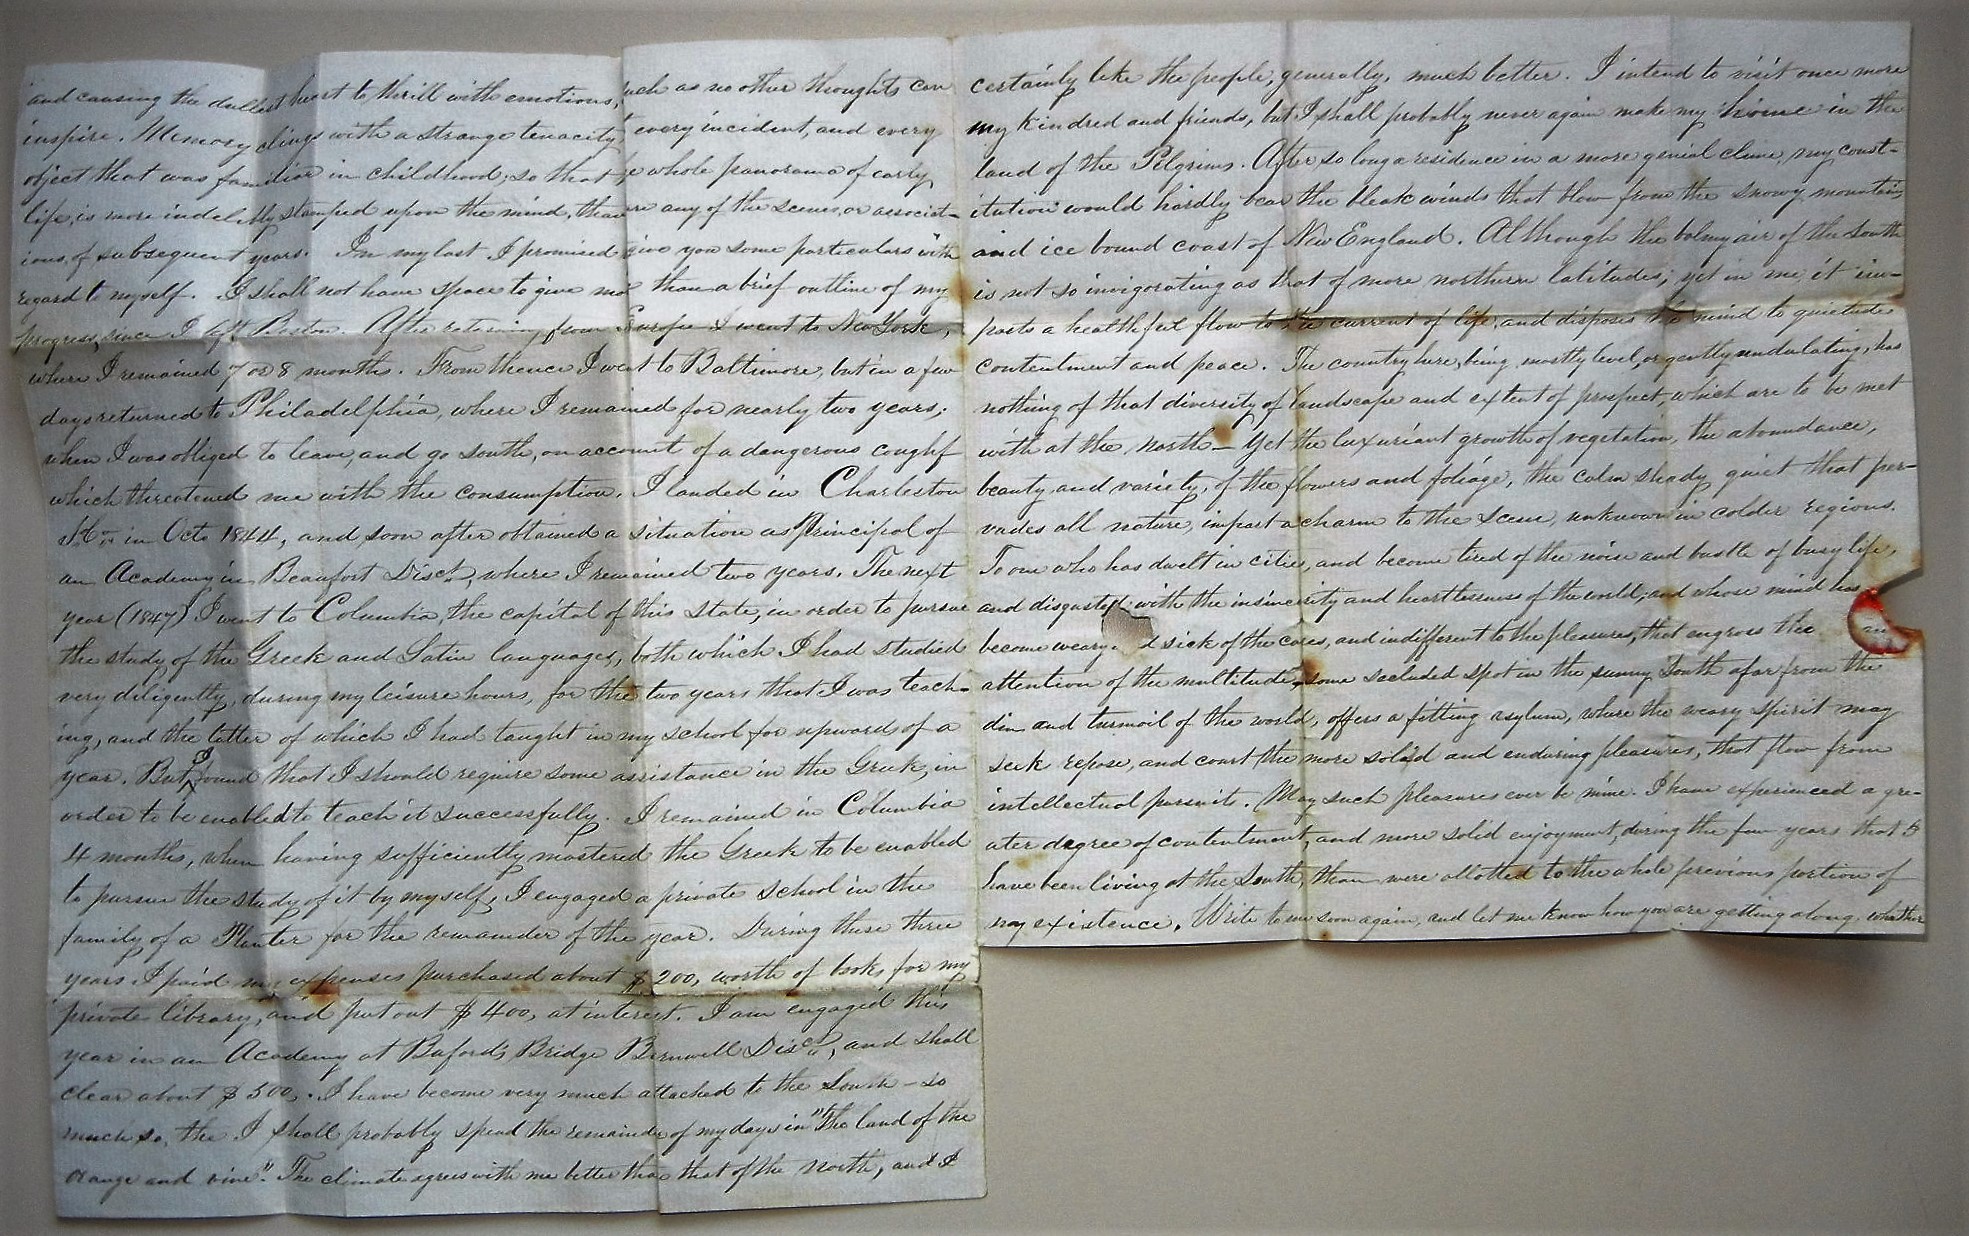 and causing the dullest heart to thrill with emotions, such as no other thoughts can
inspire. Memory clings with a strange tenacity to every incident, and every
object that was familiar in childhood; so that the whole panorama of early
life, is more indelibly stamped upon the mind, than are any of the scenes, or associat-
ions, of subsequent years. In my last I promised give you some particulars with
regard to myself. I shall not have space to give more than a brief outline of my
progress, since I left Boston. After returning from Europe I went to New York,
where I remained 7 or 8 months. From thence I went to Baltimore, but in a few
days returned to Philadelphia, where I remained for nearly two years;
when I was obliged to leave, and go South, on account of a dangerous cough
which threatened me with the consumption. I landed in Charleston
in Oct. 1844, and soon after obtained a situation as Principal of
an Academy in Beaufort Disct., where I remained two years. The next
year (1847) I went to Columbia, the capital of this State, in order to pursue
the study of the Greek and Latin languages, both which I had studied
very diligently, during my leisure hours, for the two years that I was teach-
ing, and the latter of which I had taught in my school for upwards of a
year. But I found that I should require some assistance in the Greek, in
order to be enabled to teach it successfully. I remained in Columbia
4 months, when having sufficiently mastered the Greek to be enabled
to pursue the study of it by myself, I engaged a private school in the
family of a Planter for the remainder of the year. During these three
years I paid my expenses purchased about $200, worth of books, for my
private library, and put out $400, at interest. I am engaged this
year in an Academy at Buford's Bridge Barnwell Disct., and shall
clear about $500. I have become very much attached to the South – so
much so, the I shall probably spend the remainder of my days in "the land of the
orange and vine". The climate agrees with me better than that of the North, and I
certainly like the people, generally, much better. I intend to visit once more
my kindred and friends, but I shall probably never again make my home in the
land of the Pilgrims. After so long a residence in a more genial clime, my const-
itution would hardly bear the bleak winds that blow from the snowy mountains
and ice bound coast of New England. Although the balmy air of the South
is not so invigorating as that of more northern latitudes; yet in me it im-
parts a healthful flow to the current of life, and disposes the mind to quietude
contentment and peace. The country here, being mostly level, or gently undulating, has
nothing of that diversity of landscape and extent of prospect, which are to be met
with at the north – Yet the luxuriant growth of vegetation, the abundance,
beauty, and variety, of the flowers and foliage, the calm shady quiet that per-
vades all nature, impart a charm to the scene, unknown in colder regions.
To one who has dwelt in cities, and become tired of the noise and bustle of busy life,
and disgusted with the insincerity and heartlessness of the world; and whose mind has
become weary d sick of the cares, and indifferent to the pleasures, that engross the
attention of the multitude, some secluded spot in the sunny South afar from the
din and turmoil of the world, offers a fitting asylum, where the weary spirit may
seek repose, and court the more solid and enduring pleasures, that flow from
intellectual pursuits. May such pleasures ever be mine. I have experienced a gre-
ater degree of contentment, and more solid enjoyment, during the few years that I
have been living at the South, than were allotted to the whole previous portion of
my existence. Write to me soon again, and let me know how you are getting along, whether